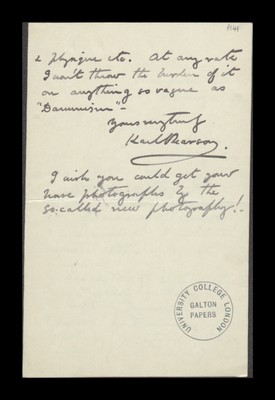 & physique etc. At any rate
I won't throw the burden of it
on anything so vague as
"Darwinism" –
Yours very truly
Karl Pearson.
I wish you could get your
photographs by the
so-called new photography! –
UNIVERSITY COLLEGE LONDON
GALTON
PAPERS